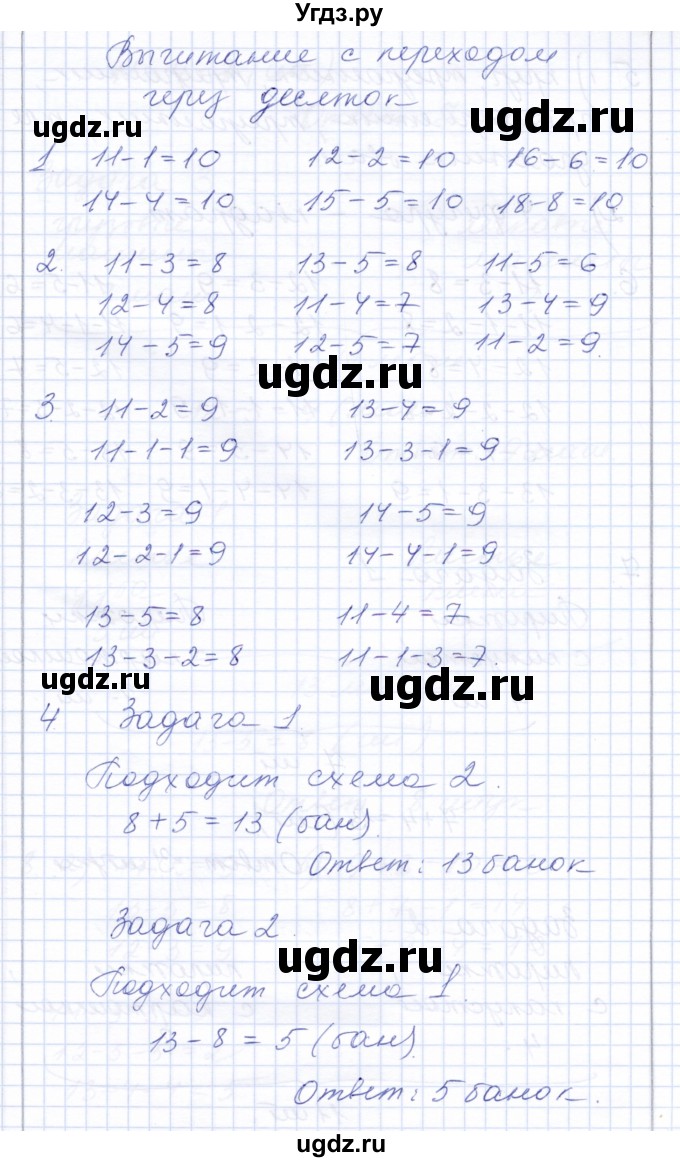 Угдз.ру
Вычитание с переходом
через десяток
ugdz.ru
ugdz.ru
1. 11-1=10 12-2=10 16-6=10
14-4=10 15-5=10 18-8=10
2. 11-3=8 13-5=8 11-5=6
12-4=8 11-4=7 13-4=9
14-5=9 12-5=7 11-2=9.
ugdz.ru
3. 11-2=9 13-4=9
11-1-1=9 13-3-1=9
12-3=9 14-5=9
12-2-1=9 14-4-1=9
13-5=8 11-4=7
13-3-2=8 11-1-3=7.
ugdz.ru
ugdz.ru
4 Задача 1.
Подходит схема 2.
8+5=13 (бан).
Ответ: 13 банок
Задача 2.
ugdz.ru
Подходит схема 1.
13-8=5 (бан).
Ответ: 5 банок.
ugdz.ru